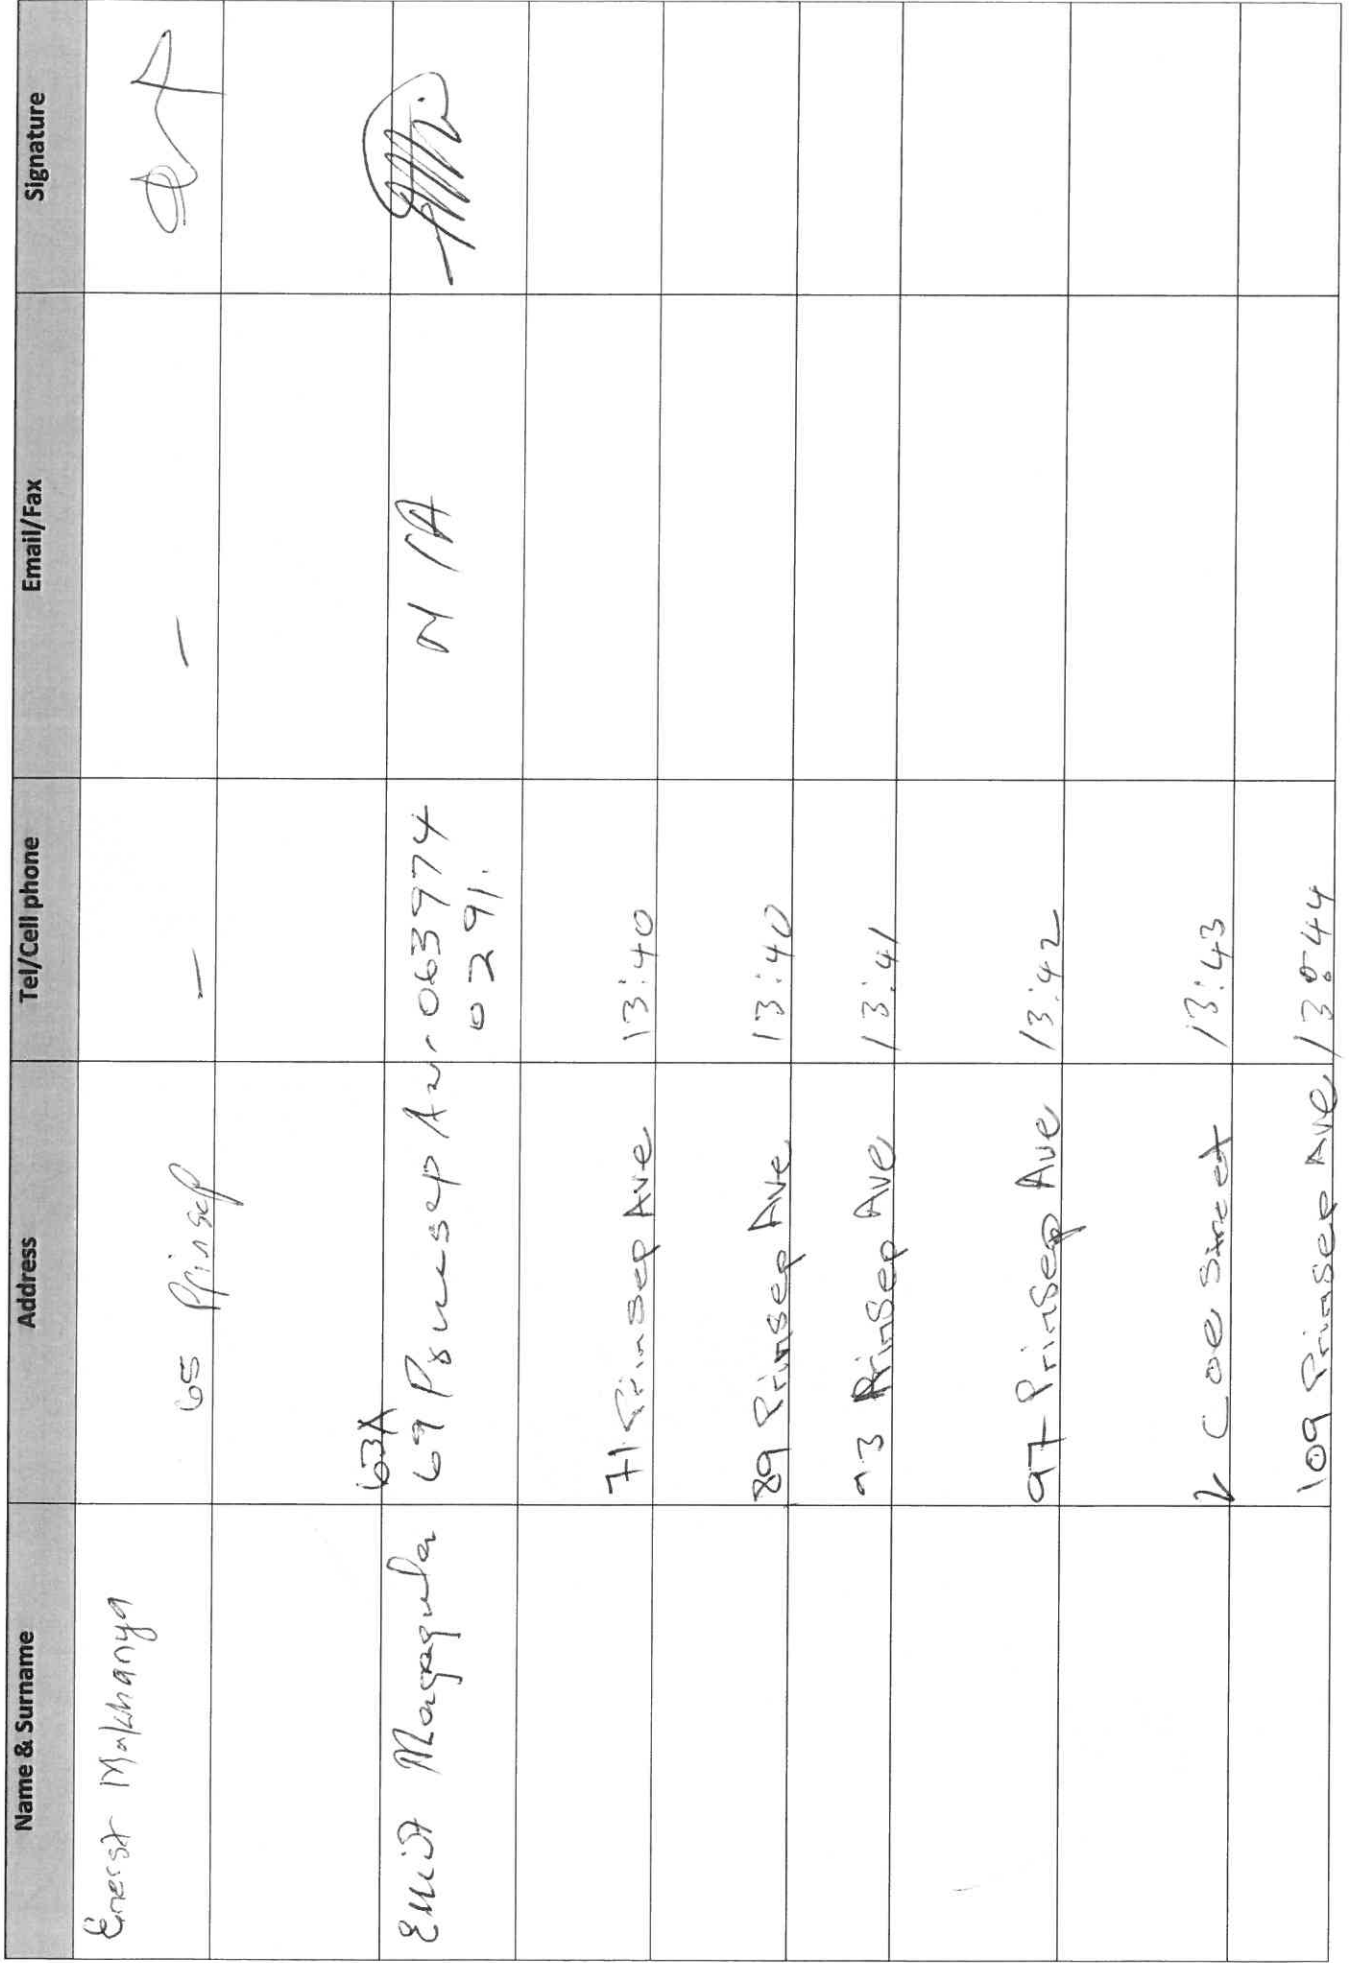 Name & Surname Address Tel/Cell phone Email/Fax Signature
Enerst Makhanya 65 Prinsep – –
63A
Elliot Magagula 69 Prinsep Ave 063974 N/A
0291.
71 Prinsep Ave 13:40
89 Prinsep Ave 13:40
93 Prinsep Ave 13:41
97 Prinsep Ave 13:42
2 Coe Street 13:43
109 Prinsep Ave 13:44